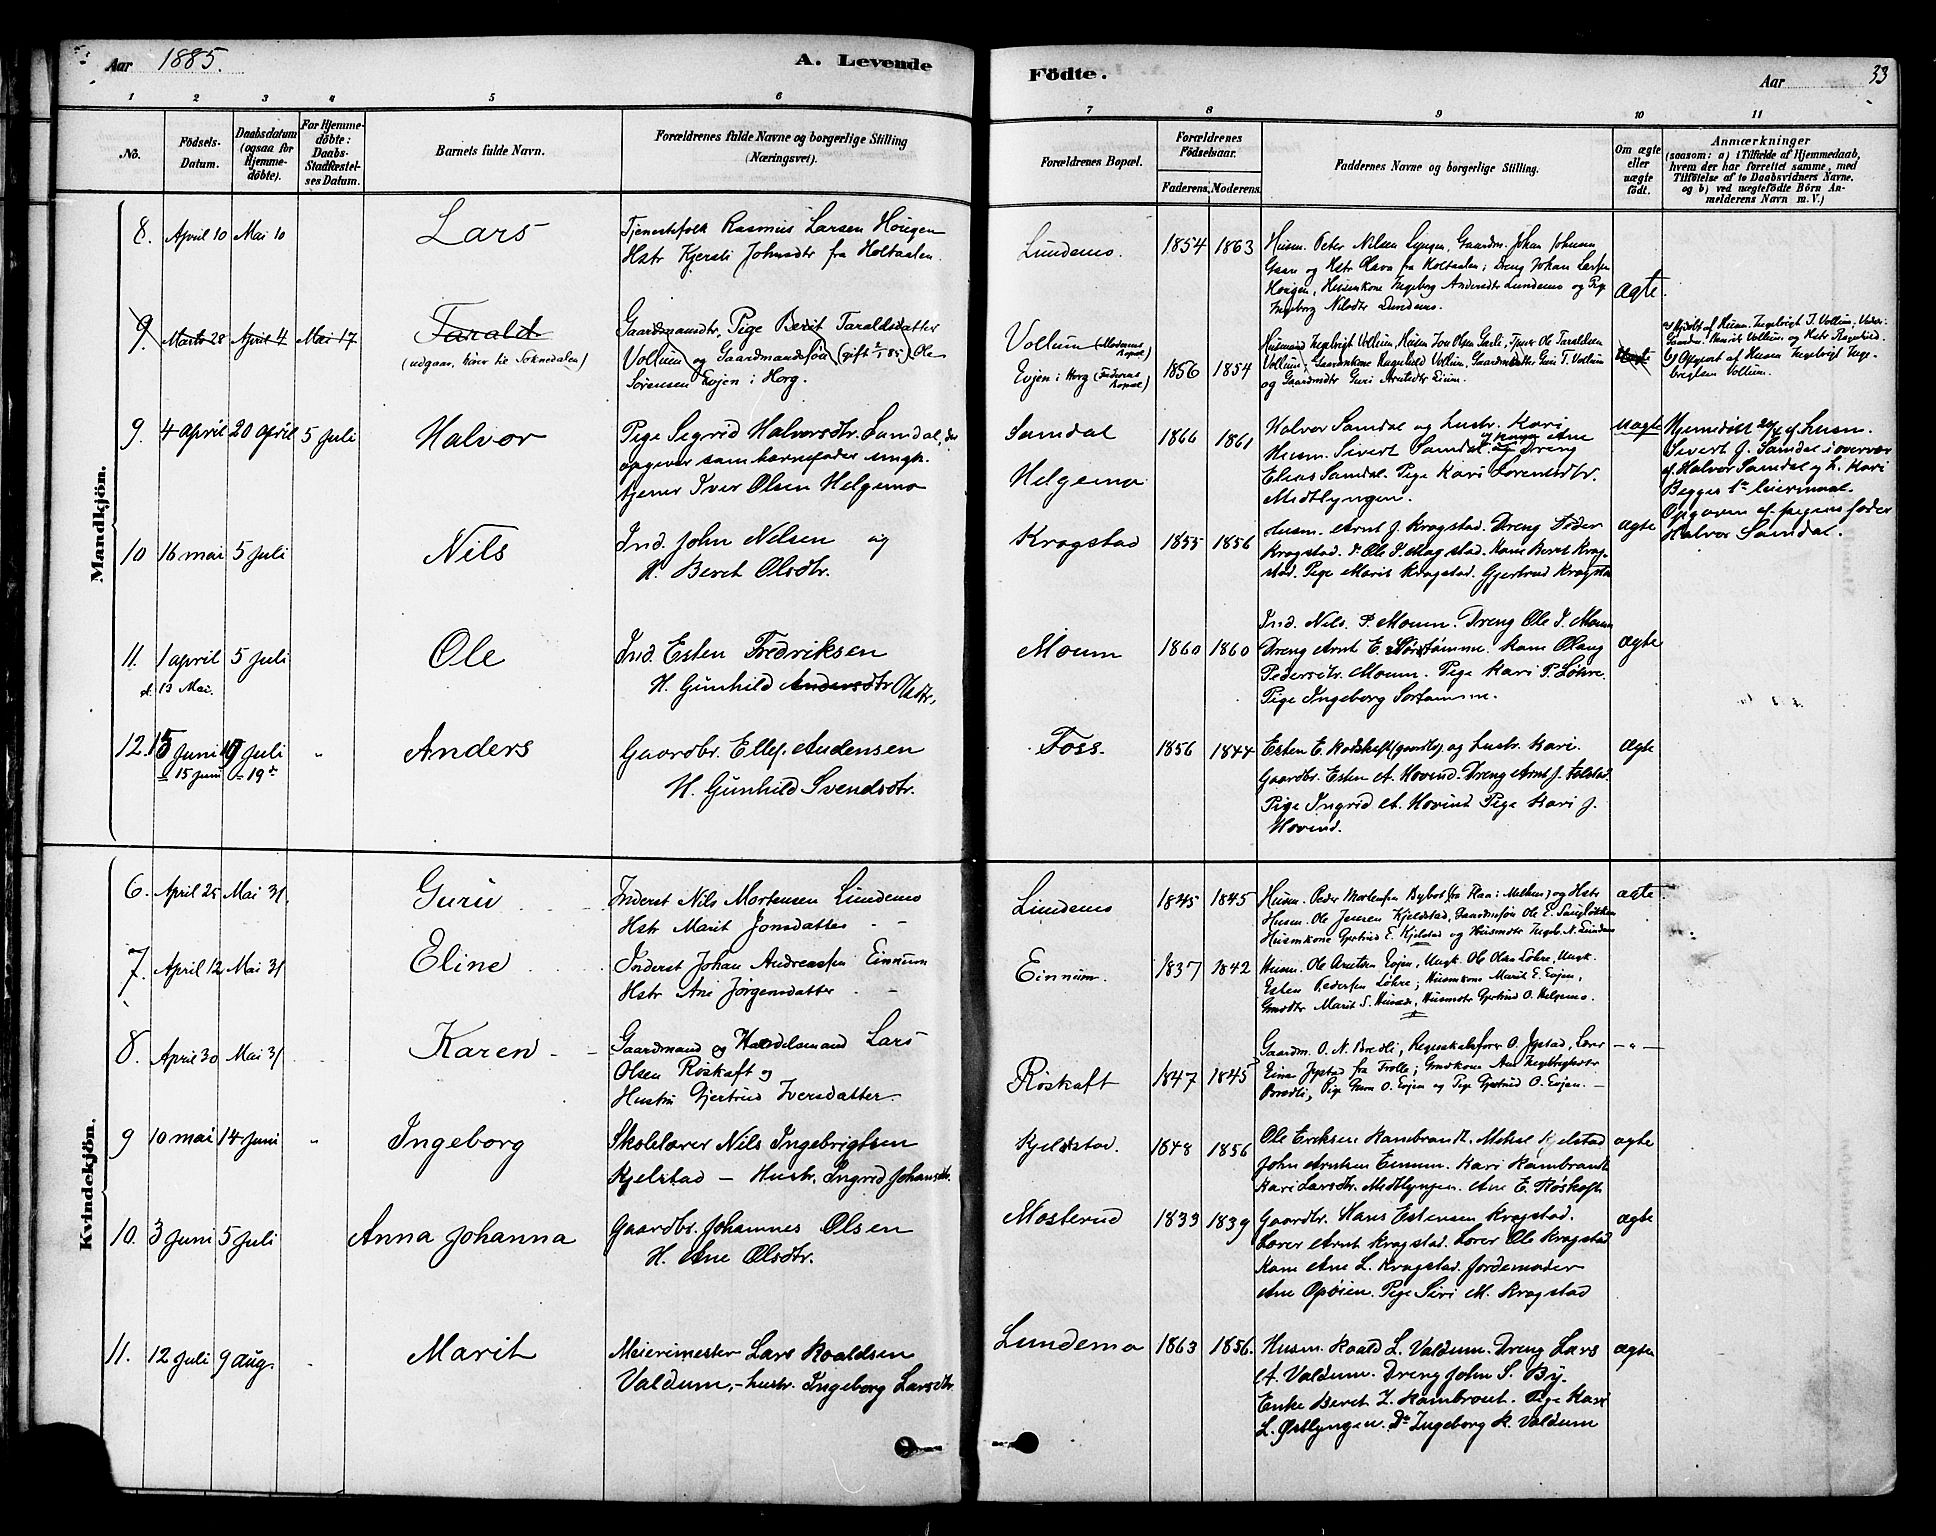 Aar 1885.
A. Levende
Födte.
Aar
33
1 2 3 4 5 6 7 8 9 10 11
No.
Födsels-Datum.
Daabsdatum (ogsaa for Hjemmedøbte).
For Hjemmedøbte: Daabs-Stadfæstelses Datum.
Barnets fulde Navn.
Forældrenes fulde Navne og borgerlige Stilling (Næringsvei).
Forældrenes Bopæl.
Forældrenes Födselsaar.
Faderens. Moderens.
Faddernes Navne og borgerlige Stilling.
Om ægte eller uægte født.
Anmærkninger
(saasom: a) i Tilfælde af Hjemmedaab, hvem der har forrettet samme, med Tilføielse af to Daabsvidners Navne. og b) ved uægtefödte Börn Anmelderens Navn m. V.)
Mandkjön.
8. April 10 Mai 10 Lars
Tjenestefolk Rasmus Larsen Hougen
Hstr Kjersti Johnsdtr fra Holtaalen.
Lundemo. 1854 1863
Husm. Peter Nilsen Lyngen, Gaardm. Johan Johnsen
Gaare og Hstr Olava fra Holtaalen; Dreng Johan Larsen
Hougen, Husmkone Ingeborg Andersdtr Lundemo og Pige
Ingeborg Nilsdtr Lundemo.
ægte.
9. Marts 28 April 4 Mai 17 Tarald
(udgaar, hører til Soknedalen)
Gaardmandsdtr. Pige Berit Taraldsdatter
Vollum og Gaardmandssøn (gift) Ole
Sørensen Evjen i Horg.
Vollum (Moderens Bopæl)
Evjen i Horg (Faderens Bopæl) 1856 1854
Husmand Ingebrigt Vollum, Husm Jon Olsen
Vollum, Gaardmkone Ragnhild Vollum, Guri T. Vollum
og Gaardmdtr Guri Arntsdtr
Vollum.
9. 4 april 20 april 5 Juli Halvor
Pige Sigrid Halvorsdtr. Samdal, der
opgiver som barnefader ungk.
tjener Iver Olsen Helgemo
Samdal
Helgemo
1866 1861
Halvor Samdal og hustr. Kari
Husm. Sivert Samdal og kone Ane Dreng
Elias Samdal. Pige Kari Lorentsdtr.
Midtlyngen.
uægte
Hjemmedøbt 20/4 af husm.
Sivert J. Samdal i overvær
af Halvor Samdal og h. Kari
Begges 1ste leiermaal.
Opgaven af pigens fader
Halvor Samdal.
10 16 mai 5 Juli Nils
Ind. John Nelsen og
H. Beret Olsdtr.
Krogstad 1855 1856
Husm. Arnt J. Krogstad. Dreng Peder
Krogstad. Do Ole P. Krogstad. Kone Beret Krog-
stad. Pige Marit Krogstad. Gjertrud Krogstad
ægte
11. 1 april 5 Juli Ole
d. 13 Mai.
Ind. Esten Fredriksen
H. Gunhild Andersdtr Olsdtr.
Moum 1860 1860
Ind. Nils P. Moum. Dreng Ole J. Moum
Dreng Arnt E. Sørtømme. Kone Olaug
Pedersdtr. Moum. Pige Kari P. Løhre.
Pige Ingeborg Sørtømme.
ægte
12. 15 Juni 19 Juli " Anders
= 15 Juni = 19de
Gaardbr. Ellef Audensen
H. Gunhild Svendsdtr.
Foss. 1856 1844
Esten E. Rodskaft (gaardbr.) og hustr. Kari.
Gaardbr. Esten A. Hovind. Dreng Arnt J. Folstad.
Pige Ingrid A. Hovind Pige Kari J.
Hovind.
ægte
Kvindekjön.
6. April 25 Mai 31. Guru
Inderst Nils Mortensen Lundemo
Hstr Marit Jonsdatter
Lundemo 1845 1845
Husm. Peder Mortensen Bybot (fra Flaa i Melhus) og Hstr
Husm. Ole Jensen Kjeldstad, Gaardmsøn Ole E.
Husmkone Gjertrud E. Kjelstad og Husmdtr Ingeb. N. Lundemo
ægte.
7. April 12 Mai 31 Eline
Inderst Johan Andreassen Einnum
Hstr Ane Jørgensdatter
Einnum. 1837 1842
Husm. Ole Arntsen Evjen, Ungk. Ole Olsen Løhre, Ungk.
Esten Pedersen Løhre; Husmkone Marit E. Evjen,
Gmdtr Marit S. , Husmdtr Gjertrud O. Helgemo.
8. April 30 Mai 31 Karen
Gaardmand og Handelsmand Lars
Olsen Röskaft og
Hustru Gjertrud Iversdatter
Röskaft 1847 1845
Gaardm. O. N. Bredli, Regnskabsfører O. Jystad, Lærer
Einar Jystad fra Frolle; Gmdkone Ane Ingeborgsdatter
Bredli, Pige Guru O. Evjen og Pige Gjertrud O. Evjen.
— " —
9 10 mai 14 Juni " Ingeborg
Skolelærer Nils Ingebrigtsen
Kjelstad — Hustr. Ingrid Johansdtr.
Kjeldstad. 1848 1856
Ole Eriksen Kambrandt. Mikal Kjelstad
John Arntsen Einum. Kari Kambrandt
Kari Larsdtr. Midtlyngen. Ane E. Röskaft
ægte
10. 3 Juni 5 Juli Anna Johanna
Gaardbr. Johannes Olsen
H. Ane Olsdtr.
Mosterud 1833 1839
Gaardbr. Hans Estensen Krogstad.
Lærer Arnt Krogstad. Lærer Ole Krogstad
Kone Ane L. Krogstad. Jordemoder
Ane Opöien. Pige Siri M. Krogstad
ægte
11. 12 Juli 9 aug. Marit
Meierimester Lars Roaldsen
Valdum, - hustr. Ingeborg Larsdtr.
Lundemo 1863 1856.
Husm. Roald L. Valdum. Dreng Lars
A. Valdum. Dreng John S. By.
Enke Beret J. Kambrout. Pige Kari
L. Østlyngen. Do Ingeborg R. Valdum
ægte